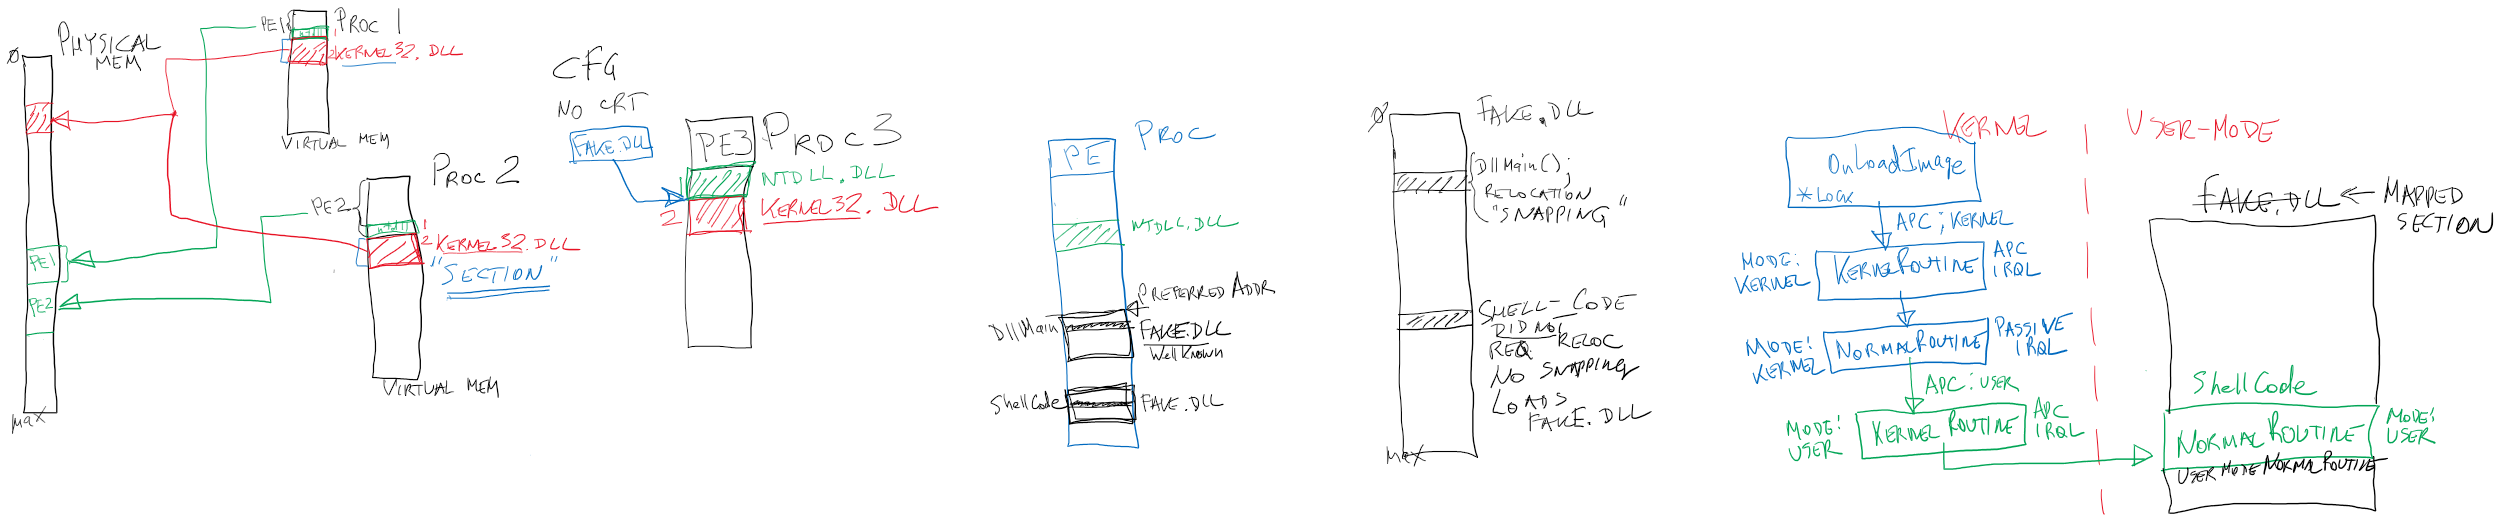 PHYSICAL
MEM
Ø
PE1
PE2
MAX
PE1
PROC 1
ntdll
1
2
KERNEL32.DLL
VIRTUAL MEM
PROC 2
PE2
ntdll
1
2
KERNEL32.DLL
"SECTION"
VIRTUAL MEM
CFG
NO CRT
FAKE.DLL
PE3
PROC 3
1
NTDLL.DLL
2
KERNEL32.DLL
PROC
PE
NTDLL.DLL
PREFERRED ADDR
DllMain
FAKE.DLL
WELL KNOWN
ShellCode
FAKE.DLL
Ø
FAKE.DLL
DllMain();
RELOCATION
"SNAPPING"
SHELL-CODE
DID NOT
REQ. RELOC
NO SNAPPING
LOADS
FAKE.DLL
MAX
KERNEL
USER-MODE
OnLoadImage
*LOCK
APC; KERNEL
MODE:
KERNEL
KERNELROUTINE
APC
IRQL
MODE:
KERNEL
NORMALROUTINE
PASSIVE
IRQL
APC: USER
MODE:
USER
KERNEL ROUTINE
APC
IRQL
FAKE.DLL
MAPPED
SECTION
ShellCode
NORMALROUTINE
MODE:
USER
USERMODE NORMALROUTINE